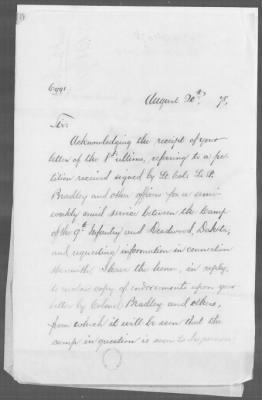 August 20th 78.
Sir:
Acknowledging the receipt of your
letter of the 1st ultimo, referring to a pe-
tition received signed by Lt. Col. L. P.
Bradley and other officers for a semi
weekly mail service between the Camp
of the 9th Infantry and Deadwood, Dakota,
and requesting information in connection
therewith I have the honor, in reply,
to enclose copy of endorsements upon your
letter by Colonel Bradley and others,
from which it will be seen that the
camp in question is soon to be